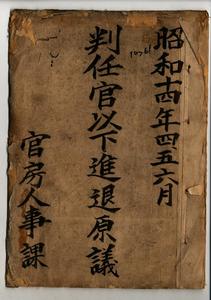 昭和十四年四五六月
判任官以下進退原議
官房人事課